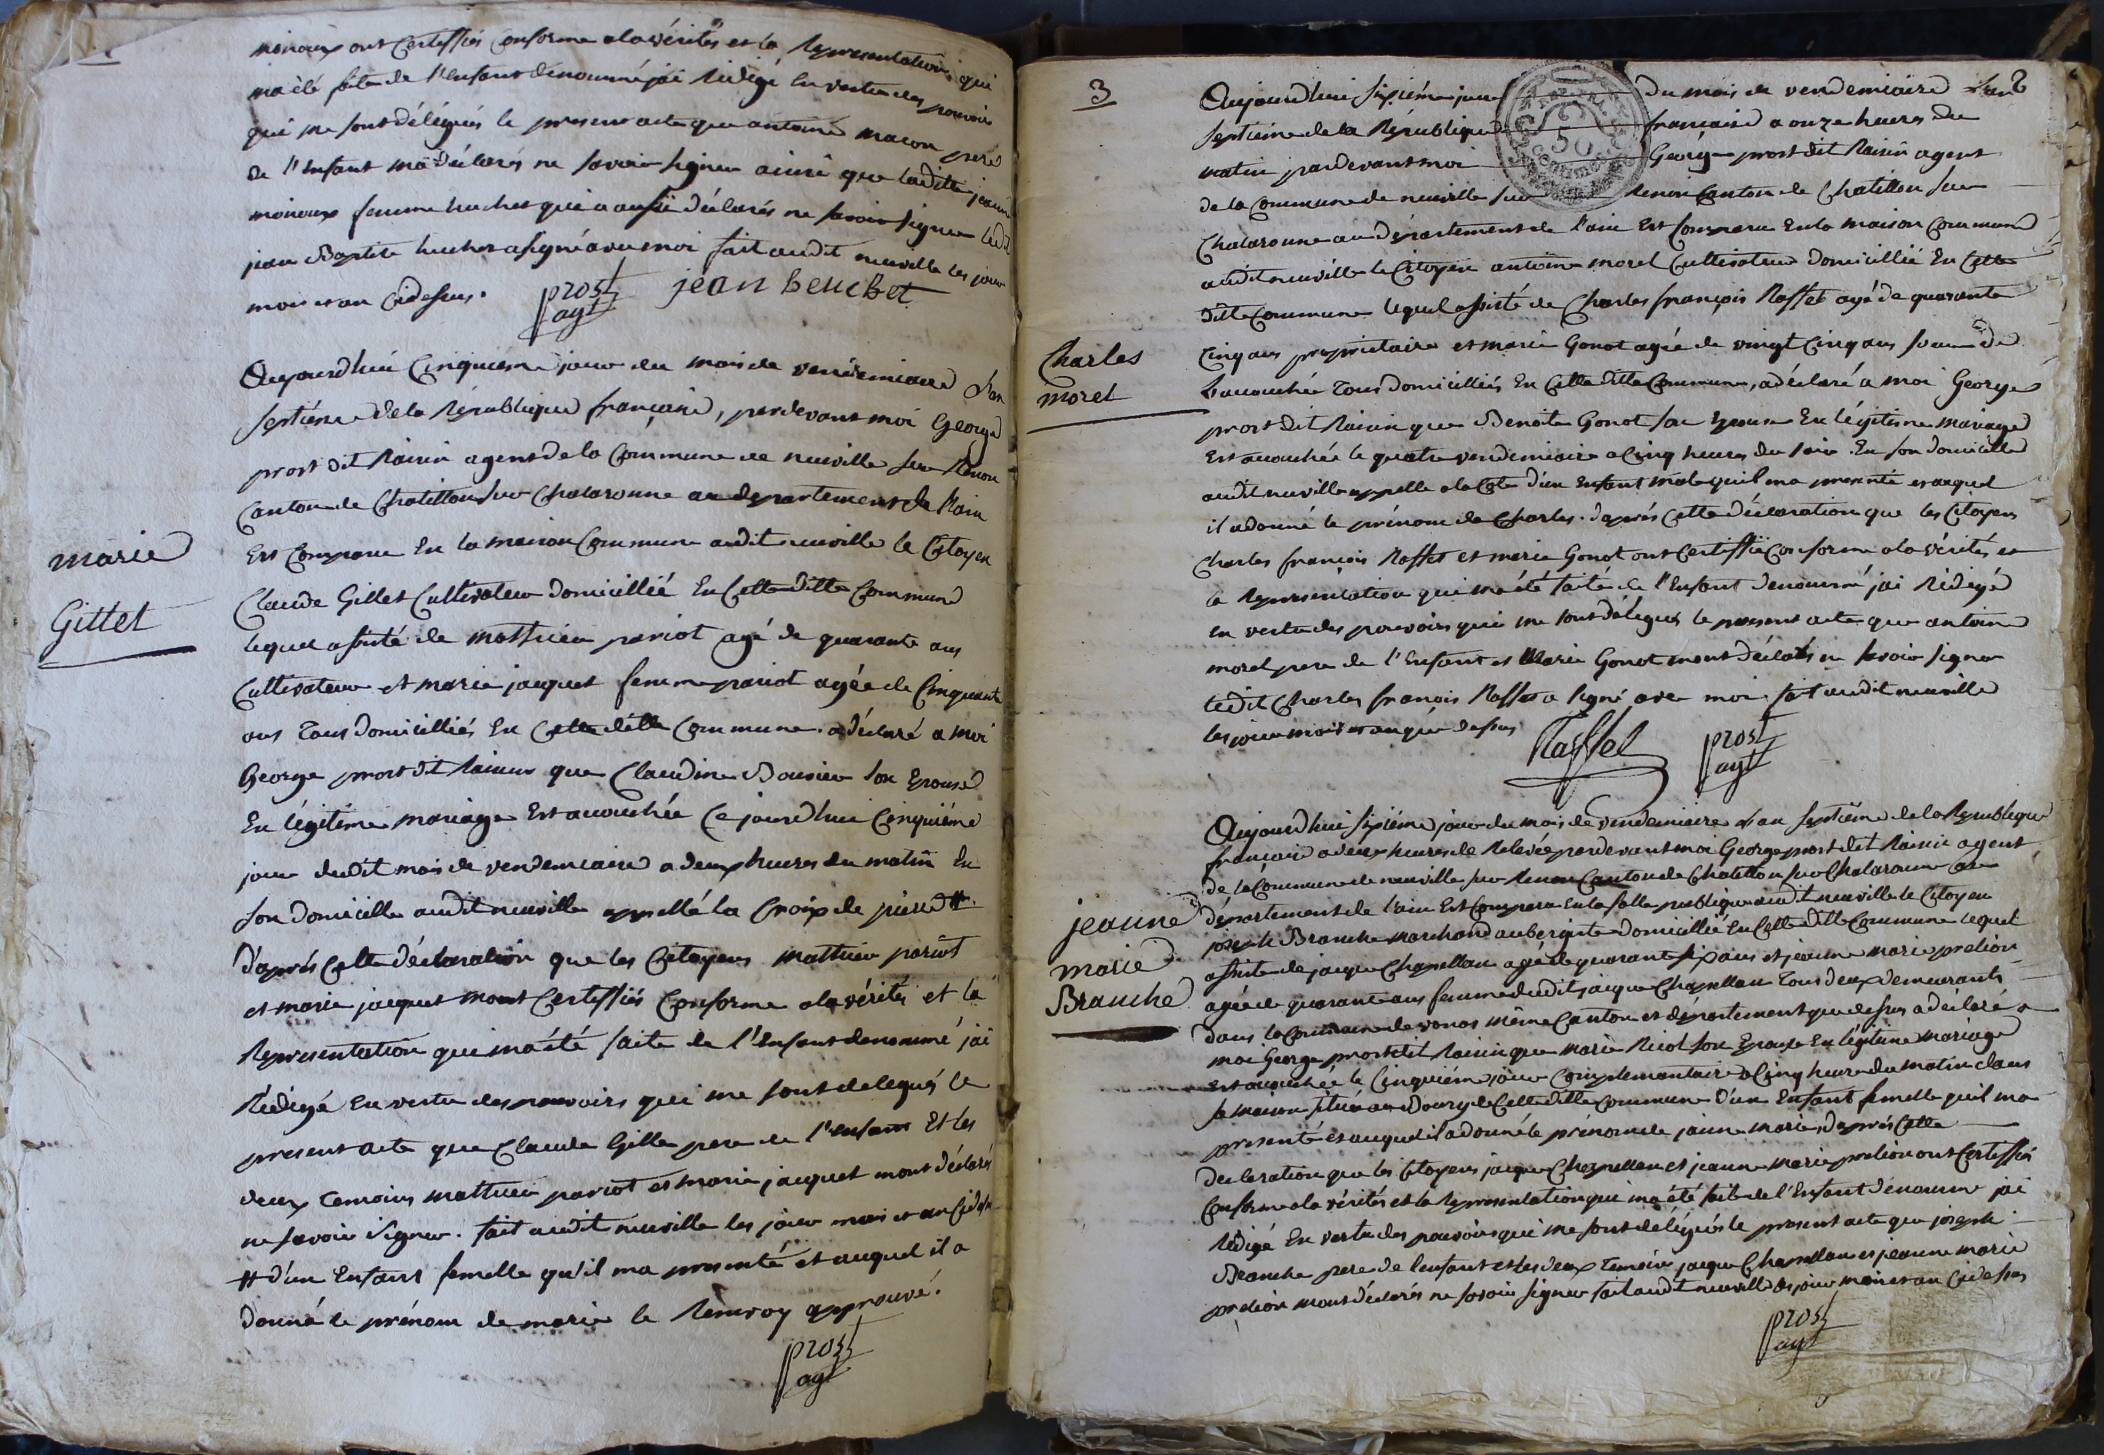 moiroux ont Certiffiés Conforme ala vérités et la Representation qui
ma été faite de l'enfant dénommé jai Rédigé En vertu des pouvoirs
qui me sont délégués le present acte que antoine macon pere
de l'Enfant ma déclarés ne savoir signer ainsi que laditte jeanne
moiroux femme huchet qui a aussi déclarés ne savoir signer ledit
jean Baptiste huchet a signé avec moi fait audit neuville les jour
mois et an Cidessus.
prost
agt
jean beuchet
Aujourdhui Cinquieme jour du mois de vendemiaire Lan
septième de la République française, pardevant moi George
prost dit Rainin agent de la Commune de neuville sur Renon
Canton de Chatillon sur Chalaronne au departement de lain
Est Comparu En la maison Commune audit neuville le Citoyen
marie
Gillet
Claude Gillet Cultivateur domicillié En Cette ditte Commune
lequel assisté de matthieu pariot agé de quarante ans
Cultivateur et marie jacquet femme pariot agée de Cinquante
ans Tous domicilliés En Cette ditte Commune. a déclaré a moi
George prost dit Rainin que Claudine Bouvier son Epouse
En légitime mariage Est accouchée Ce jourd'hui Cinquième
jour dudit mois de vendemiaire a deux heures du matin En
son domicille audit neuville appellé la Croix de pierre #.
d'après Cette déclaration que les Citoyens matthieu pariot
et marie jacquet mont Certiffiés Conforme ala vérités et la
Representation qui ma été faite de l'Enfant denommé jai
Rédigé En vertu des pouvoirs qui me sont delegués le
present acte que Claude Gillet pere de l'enfant Et les
deux Temoins matthieu pariot et marie jacquet mont déclarés
ne savoir signer. fait audit neuville les jour mois et an Cidessus
# d'un Enfant femelle qu'il ma presenté et auquel il a
donné le prénom de marie le Renvoy approuvé.
prost
agt
3
Aujourdhui sixième jour du mois de vendemiaire Lan
septieme de la République française a onze heures du
matin pardevant moi George prost dit Rainin agent
de la Commune de neuville sur Renon Canton de Chatillon sur
Chalaronne au département de lain Est Comparu En la maison Commune
audit neuville le Citoyen antoine morel Cultivateur domicillié En Cette
ditte Commune lequel assisté de Charles françois Raffet agé de quarante
Charles
morel
Cinq ans propriétaire et marie Gonot agée de vingt Cinq ans soeur de
Laccouchée Tous domicilliés En Cette ditte Commune, a déclaré a moi George
prost dit Rainin que Benoite Gonot son Epouse En légitime mariage
Est accouchée le quatre vendemiaire a Cinq heures du soir En son domicille
audit neuville appellé ala Cote d'un Enfant male quil ma presenté et auquel
il a donné le prénom de Charles. d'après Cette déclaration que les Citoyens
Charles françois Raffet et marie Gonot ont Certiffié Conforme ala vérités et
la Representation qui ma été faite de l'Enfant denommé jai Rédigé
en vertu des pouvoirs qui me sont délégués le present acte que antoine
morel pere de l'Enfant et Marie Gonot mont déclarés ne savoir signer
ledit Charles françois Raffet a signé avec moi fait audit neuville
les jour mois et an que dessus
Raffet
prost
agt
Aujourdhui sixième jour du mois de vendemiaire Lan septième de la République
française a deux heures de Relevée pardevant moi George prost dit Rainin agent
de la Commune de neuville sur Renon Canton de Chatillon sur Chalaronne au
jeanne
marie
Branche
département de lain Est Comparu En la salle publique audit neuville le Citoyen
joseph Branche marchand aubergiste domicillié En Cette ditte Commune lequel
assisté de jacque Chapellan agé de quarante six ans et jeanne marie prelion
agée de quarante ans femme dudit jacque Chapellan Tous deux demeurants
dans la Commune de vonas même Canton et département que dessus a déclaré a
moi George prost dit Rainin que marie Nicol son Epouse En légitime mariage
est accouchée le Cinquième jour Complementaire a Cinq heure du matin dans
sa maison située au Bourg de Cette ditte Commune d'un Enfant femelle quil ma
presenté et auquel il a donné le prénom de jeanne marie, d'après Cette
declaration que les Citoyens jacque Chapellan et jeanne marie prelion ont Certiffiés
Conforme ala vérités et la Representation qui ma été faite de l'Enfant dénommé jai
Rédigé En vertu des pouvoirs qui me sont délégués le present acte que joseph
Branche pere de lenfant et les deux Temoins jacque Chapellan et jeanne marie
prelion mont déclarés ne savoir signer fait audit neuville les jour mois et an Cidessus
prost
agt